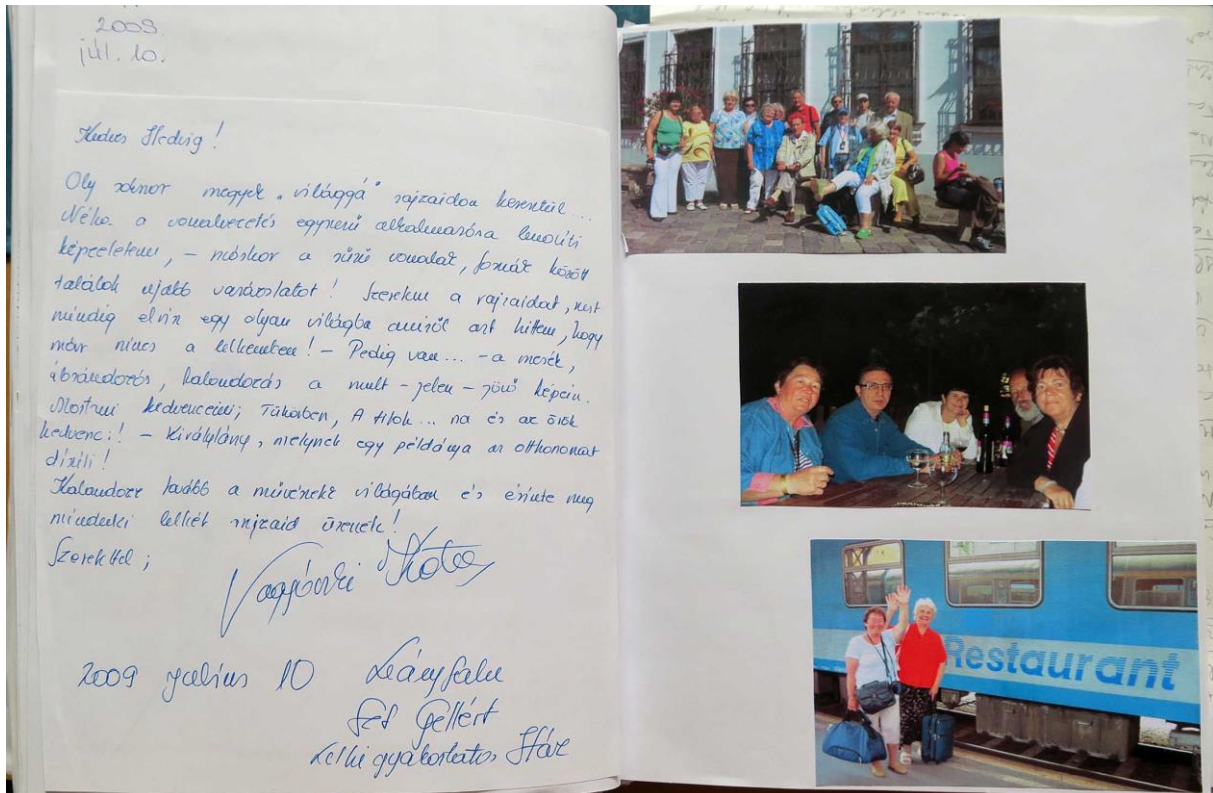 2009.
júl. 10.
Kedves Hedvig!
Oly sokszor megyek „világgá" rajzaidon keresztül....
Néha a vonalvezetés egyszerű alkalmazása lenyűgözi
képzeletem, – máskor a sűrű vonalak, formák között
találok újabb varázslatot! Szeretem a rajzaidat, mert
mindig elvisz egy olyan világba amiről azt hittem, hogy
már nincs a lelkemben! – Pedig van... – a mesék,
ábrándozás, kalandozás a mult – jelen – jövő képein.
Mostani kedvenceim; Tükörben, A titok... na és az örök
kedvenc:! – Királylány, melynek egy példánya az otthonomat
díszíti!
Kalandozz tovább a művészet világában és érintse meg
mindenki lelkét rajzaid üzenete!
Szeretettel;
2009 Julius 10 Leányfalu
Szt Gellért
Lelkigyakorlatos Ház
Restaurant